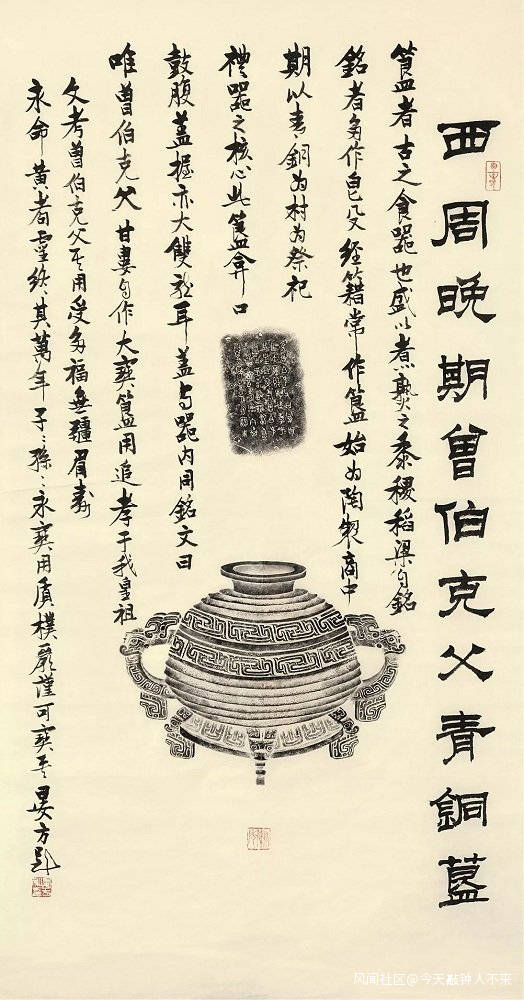 西周晚期曾伯克父青銅簋
簋者古之食器也盛以煮熟之黍稷稻粱自銘
銘者多作皀殳經籍常作簋始为陶製商中
期以青銅为材为祭祀
禮器之核心此簋弇口
鼓腹蓋握亦大雙龍耳蓋与器内同銘文曰
唯曾伯克父甘婁自作大寶簋用追孝于我皇祖
文考曾伯克父其用受多福無疆眉壽
永命黄耇霝終其萬年子〻孫〻永寶用質樸嚴謹可寶晏方題
风闻社区@今天敲钟人不来